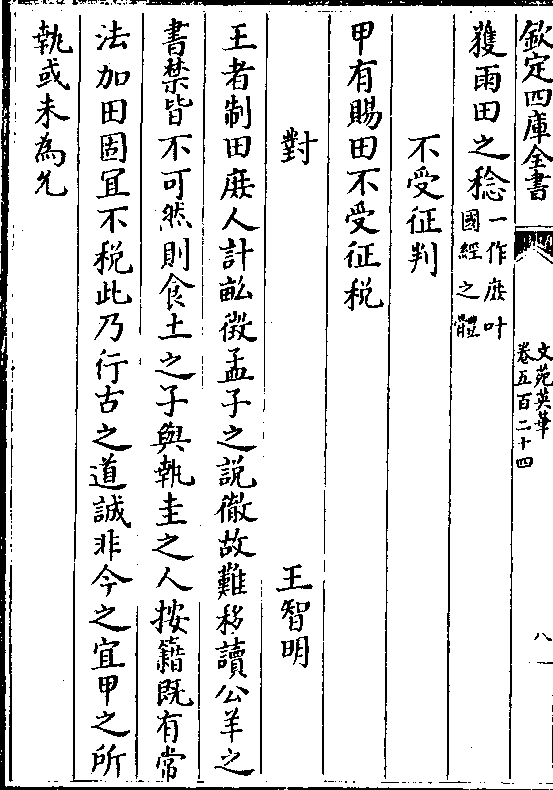 欽定四庫全書
文苑英華
卷五百二十四
八
穫雨田之稔一作庶叶
國經之體
不受征判
甲有賜田不受征税
對
王智明
王者制田庶人計畝徵孟子之説徹故難移讀公羊之
書禁皆不可然則食土之子與執圭之人按籍既有常
法加田固宜不税此乃行古之道誠非今之宜甲之所
執或未為允